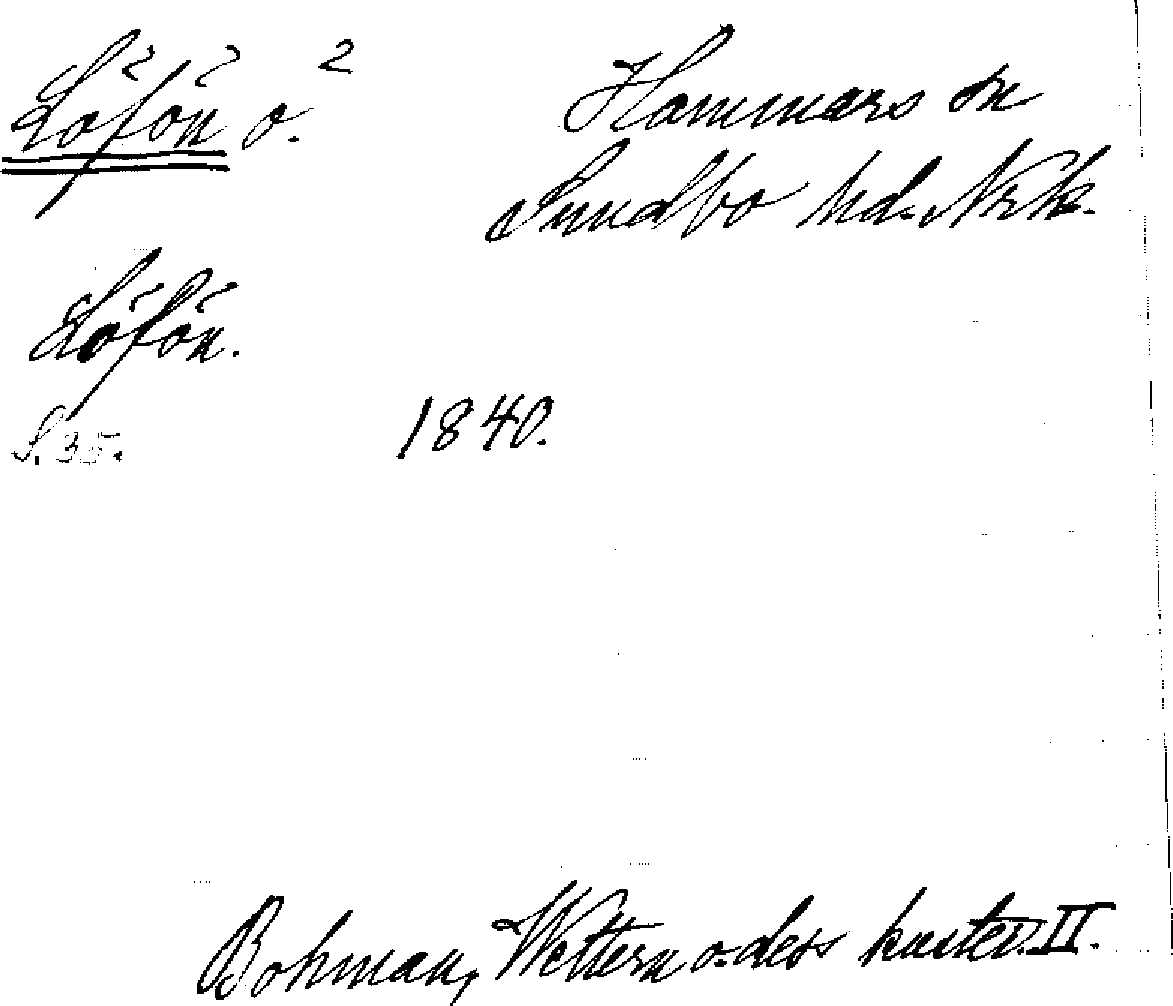 Löfön ö.
Hammars sn
Sundbo hd. Nrk.
Löfön.
S. 35.
1840.
Bohman, Wettern o. dess kuster. II.